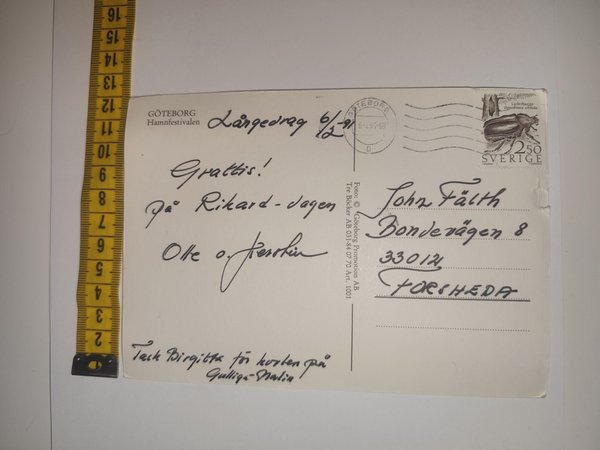 16
15
14
13
12
11
10
9
8
7
6
5
4
3
2
GÖTEBORG
Hamnfestivalen
Långedrag 6/2-91
GÖTEBORG
Läderbagge
2.50
SVERIGE
Grattis!
på Rikard-dagen
Olle o. Kerstin
Tack Birgitta för kortet på
Gulliga Malin
Foto: © Göteborg Promotion AB
Tre Böcker AB 031-84 07 70 Art. 1001
John Fälth
Bondevägen 8
33012
FORSHEDA